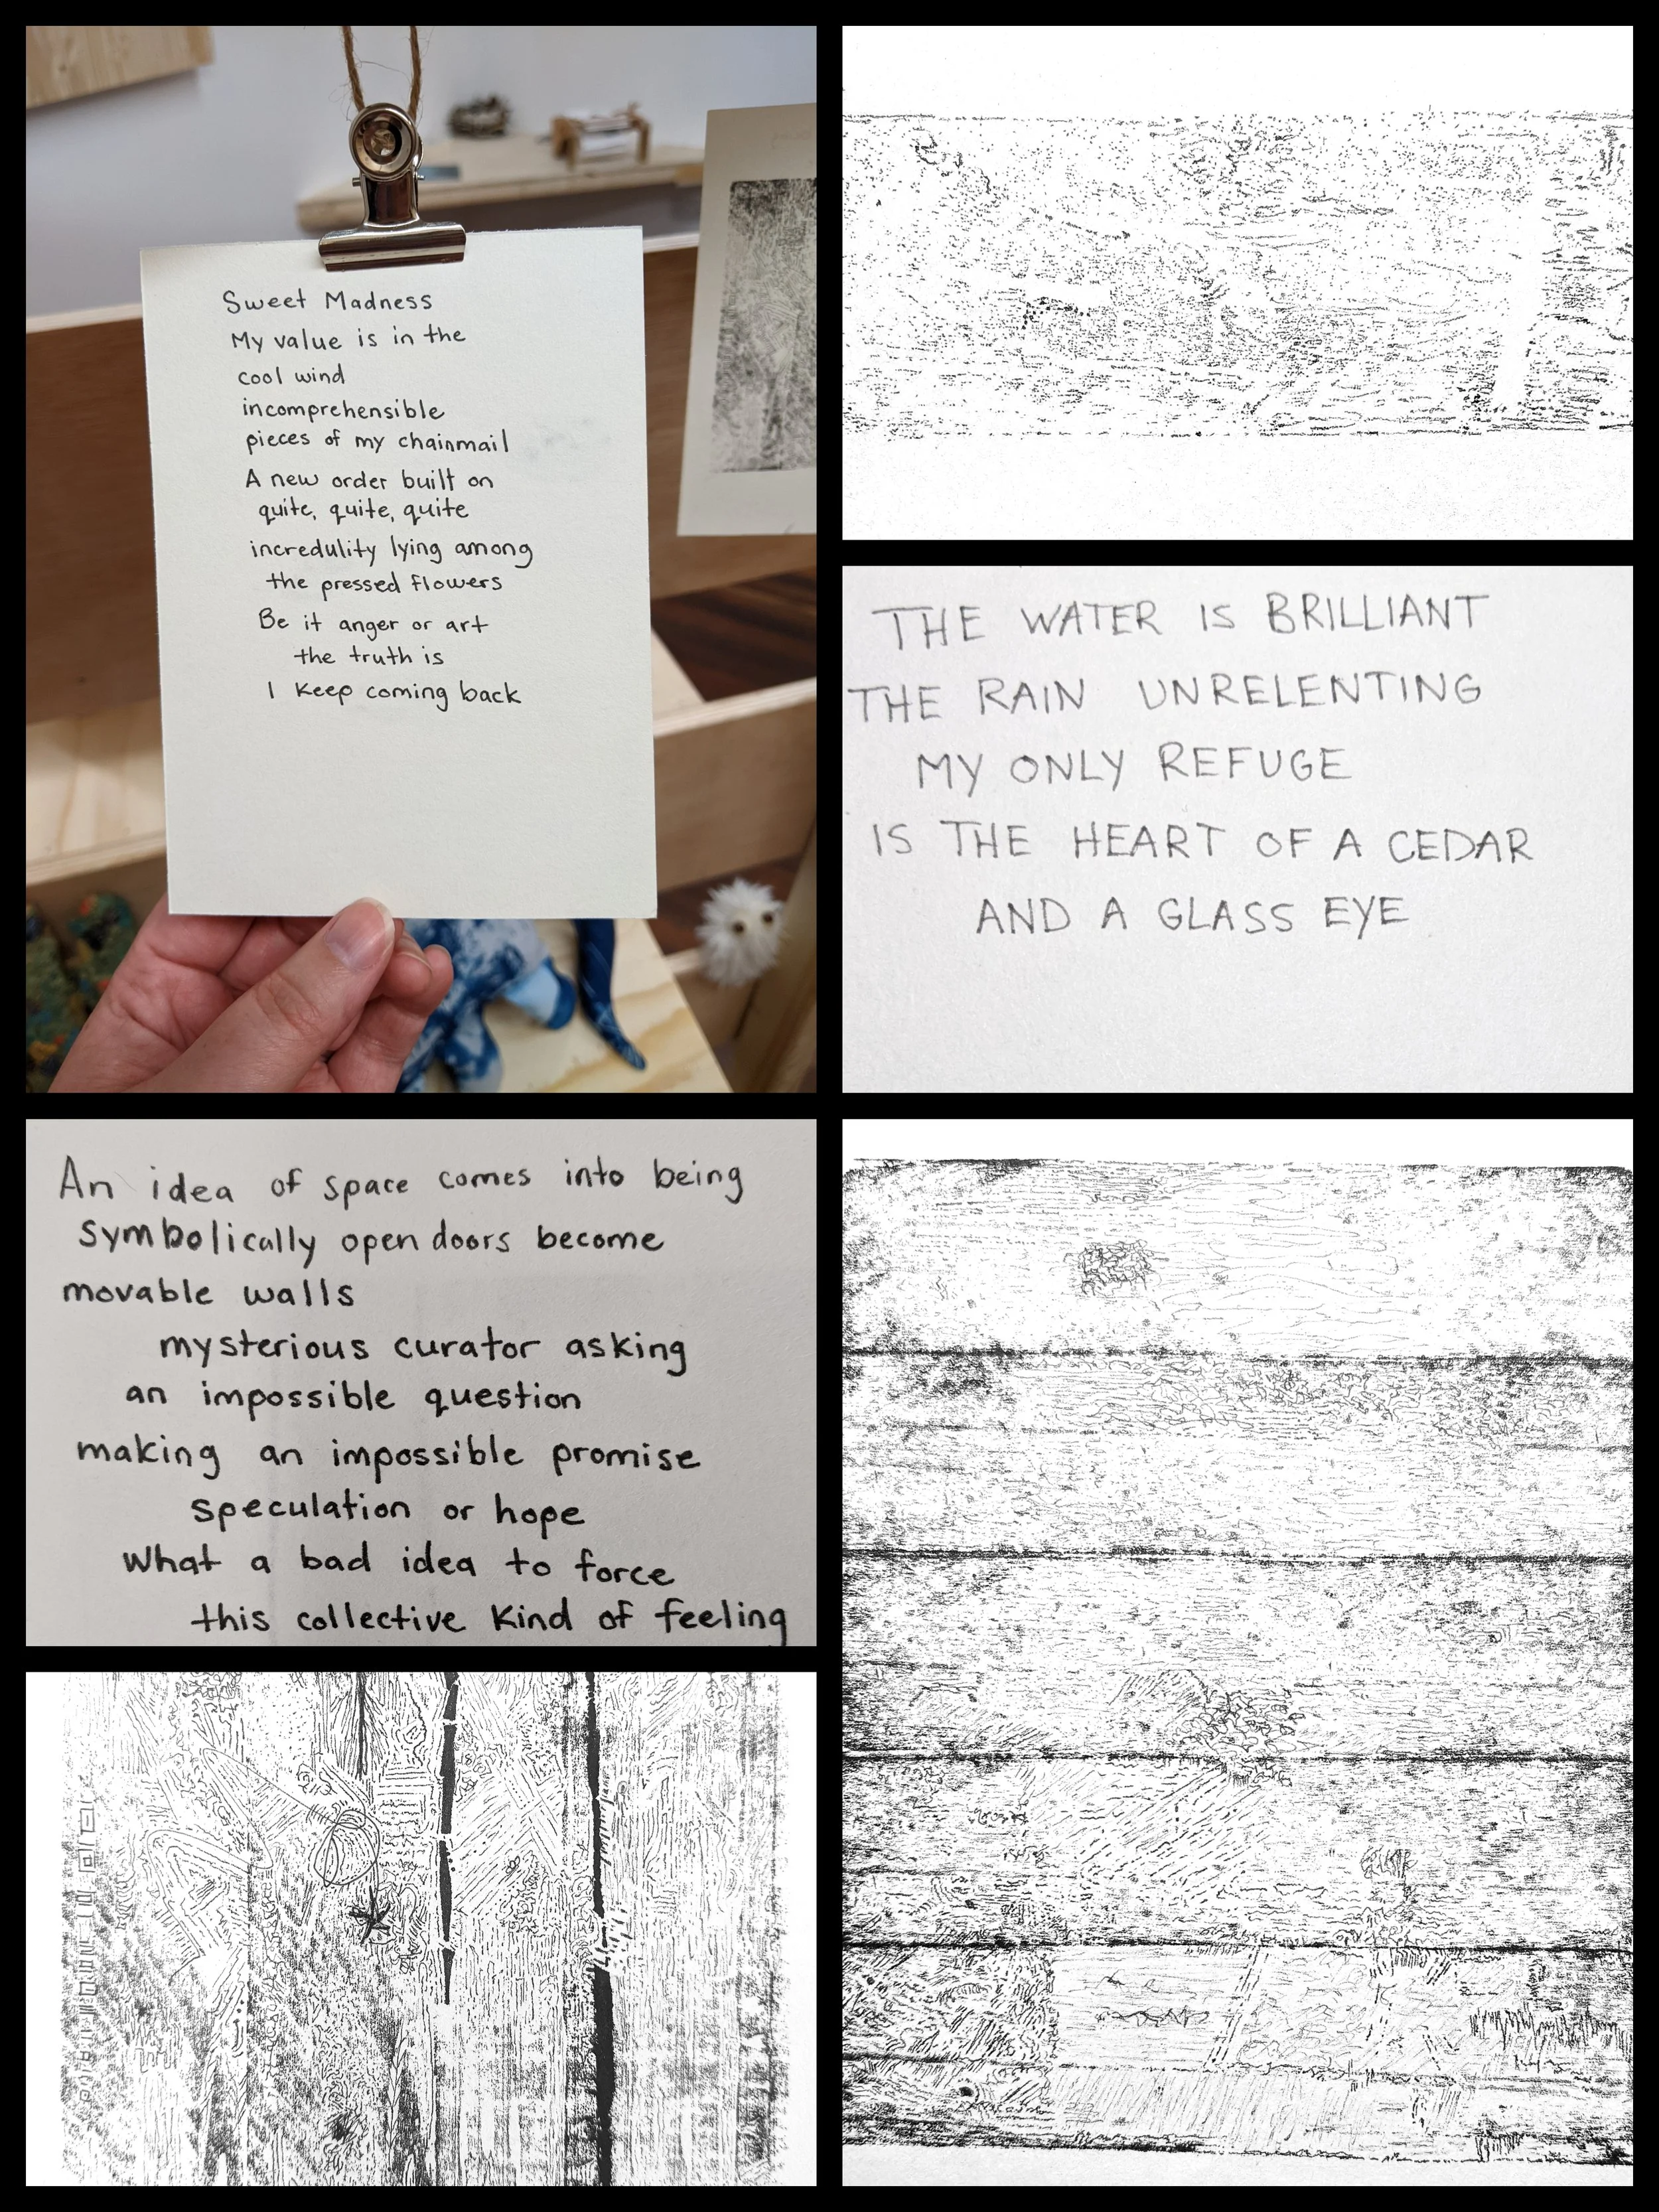 Sweet Madness
My value is in the
cool wind
incomprehensible
pieces of my chainmail
A new order built on
quite, quite, quite
incredulity lying among
the pressed flowers
Be it anger or art
the truth is
I keep coming back
THE WATER IS BRILLIANT
THE RAIN UNRELENTING
MY ONLY REFUGE
IS THE HEART OF A CEDAR
AND A GLASS EYE
An idea of space comes into being
symbolically open doors become
movable walls
mysterious curator asking
an impossible question
making an impossible promise
speculation or hope
What a bad idea to force
this collective kind of feeling